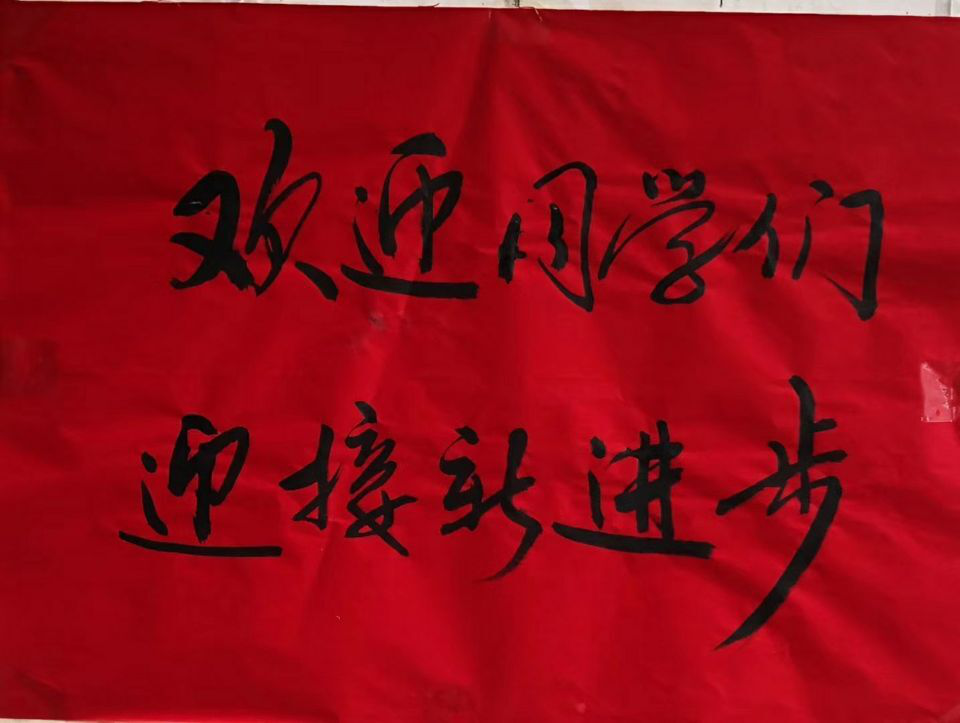 欢迎同学们
迎接新进步